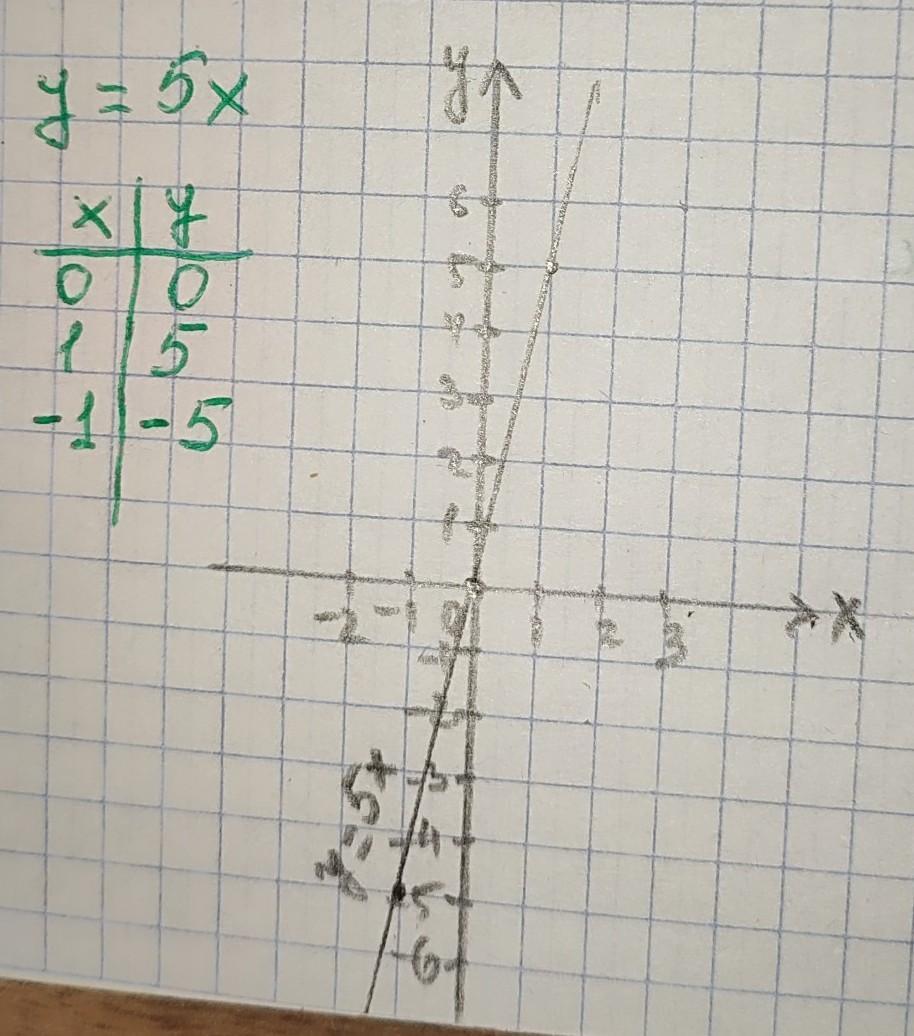 y = 5x
x | y
0 | 0
1 | 5
-1 | -5
y
6
5
4
3
2
1
-2 -1 0 1 2 3 x
-1
-2
-3
-4
-5
-6
y = 5x